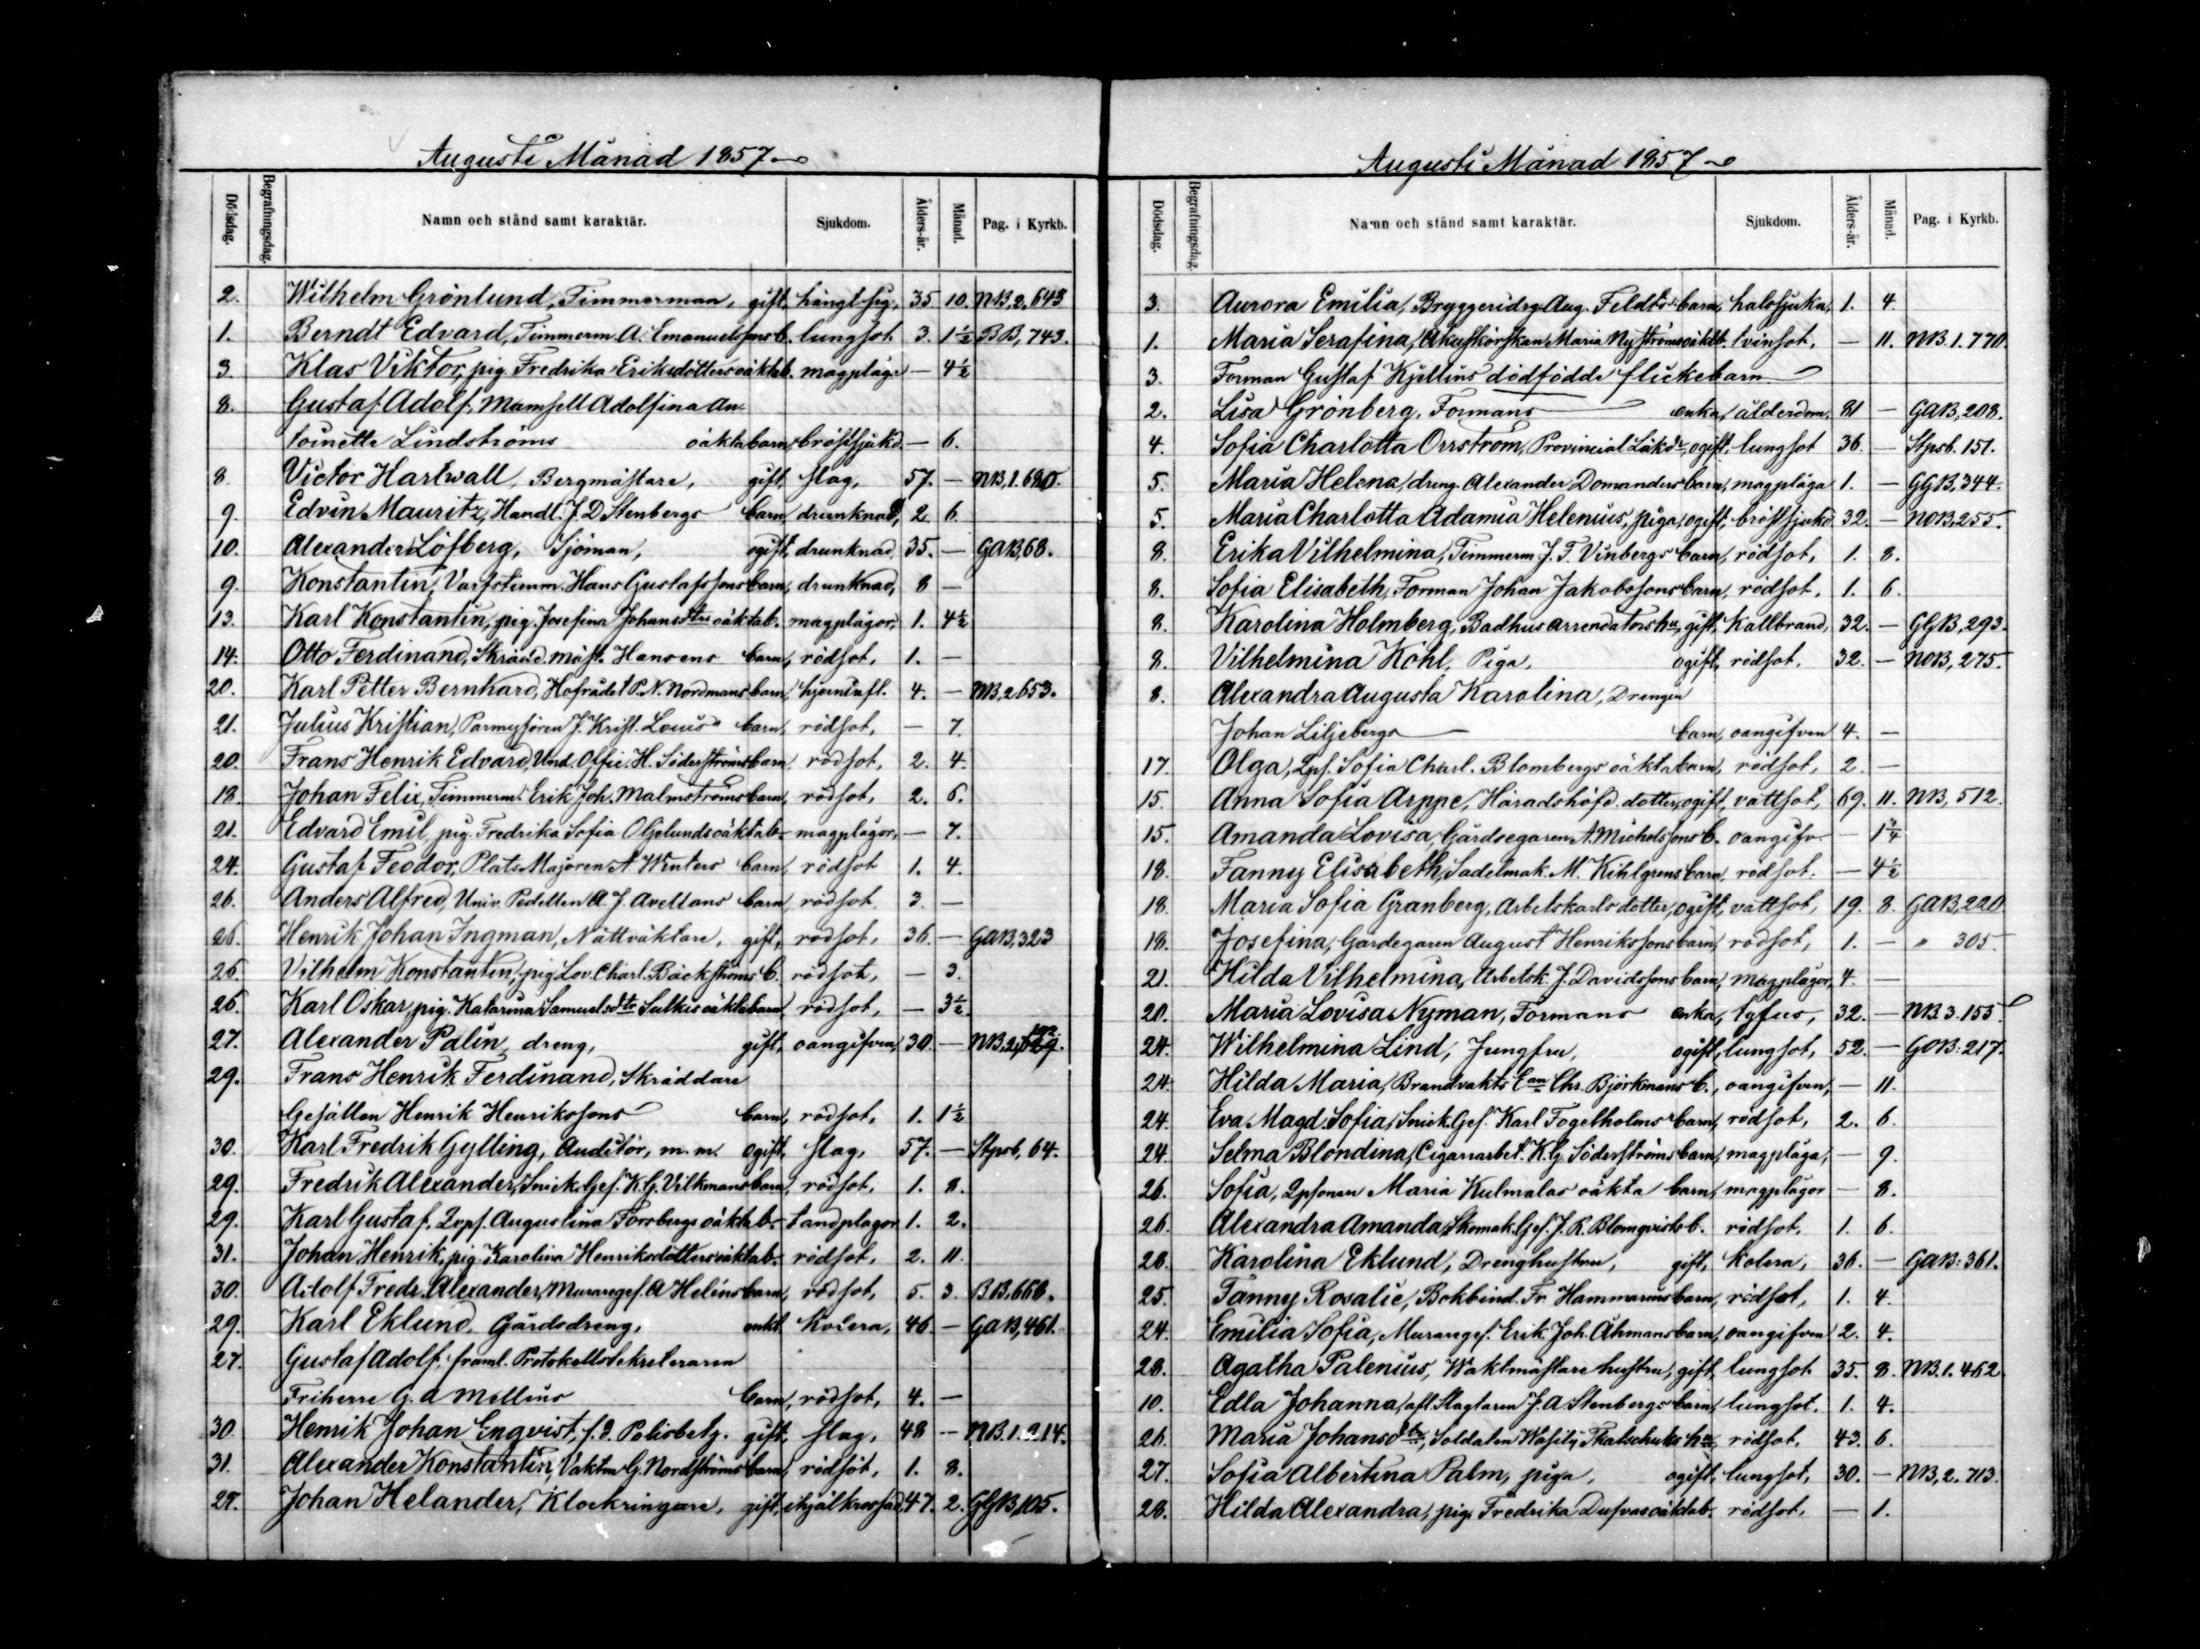 Augusti Månad 1857
Dödsdag. Begrafningsdag. Namn och stånd samt karaktär. Sjukdom. Ålders-år. Månad. Pag. i Kyrkb.
2. Wilhelm Grönlund, Timmerman, gift, hängt sig, 35 10. NB, 2, 643
1. Berndt Edvard, Timmerm A. Emanuelssons b. lungsot 3. 1½ BB, 743.
3. Klas Viktor, pig. Fredrika Eriksdotters oäkta b. magplågor — 4½
8. Gustaf Adolf, Mamsell Adolfina An-
toinette Lindströms oäkta barn, bröstsjukd. — 6.
8. Victor Hartwall, Bergmästare, gift, slag, 57. — NB, 1. 680.
9. Edvin Mauritz, Handl. J. D Stenbergs barn, drunknad, 2 6.
10. Alexander Löfberg, Sjöman, ogift, drunknad, 35. — GAB, 68.
9. Konstantin, Varfstimm. Hans Gustafssons barn, drunknad, 8 —
13. Karl Konstantin, pig. Josefina Johansdtrs oäkta b. magplågor, 1. 4½
14. Otto Ferdinand, Skrädd. mäst. Hansens barn, rödsot, 1. —
20. Karl Petter Bernhard, Hofrådet P. N. Nordmans barn, hjerninfl. 4. — NB, 2 653.
21. Julius Kristian, J. Krist. Louis barn, rödsot, — 7.
20. Frans Henrik Edvard, Und. Offic. H. Söderströms barn, rödsot, 2. 4.
18. Johan Felix, Timmerm. Erik Joh. Malmströms barn, rödsot, 2. 6.
21. Edvard Emil, pig. Fredrika Sofia Öljelunds oäkta b. magplågor, — 7.
24. Gustaf Feodor, Plats Majoren A. Winters barn, rödsot 1. 4.
26. Anders Alfred, Univ. Pedellen A. J. Avellans barn, rödsot. 3. —
26. Henrik Johan Ingman, Nattväktare, gift, rödsot, 36. — GAB, 323
26. Vilhelm Konstantin, pig Lov. Charl. Bäckströms b. rödsot, — 3.
26. Karl Oskar, pig. Katarina Samuelsdtr Sulkis oäkta barn, rödsot, — 3½.
27. Alexander Palin, dreng, gift, oangifven, 30. — NB, 2,
29. Frans Henrik Ferdinand, Skräddare
Gesällen Henrik Henrikssons barn, rödsot, 1. 1½
30. Karl Fredrik Gylling, Auditör, m. m. ogift, slag, 57. — Stpsb, 64.
29. Fredrik Alexander, Snick. Ges. K. G. Vilkmans barn, rödsot, 1. 8.
29. Karl Gustaf, Qvpf. Augustina Forsbergs oäkta b. tandplågor 1. 2.
31. Johan Henrik, pig. Karolina Henriksdotters oäkta b. rödsot, 2. 11.
30. Adolf Fredr. Alexander, Muraregef. A Helins barn, rödsot, 5. 3. BB, 668.
29. Karl Eklund, Gårdsdreng, enkl. kolera, 46. — GAB, 461.
27. Gustaf Adolf, framl. Protokollsekreteraren
Friherre G. A Mellins barn, rödsot, 4. —
30. Henrik Johan Enqvist, f. d. Polisbetj. gift, slag, 48 — NB. 1. 214.
31. Alexander Konstantin, Vaktm G. Nordströms barn, rödsot, 1. 8.
27. Johan Helander, Klockringare, gift, ihjälkrossad, 47. 2. GGB, 105.
Augusti Månad 1857
Dödsdag. Begrafningsdag. Namn och stånd samt karaktär. Sjukdom. Ålders-år. Månad. Pag. i Kyrkb.
3. Aurora Emilia, Bryggeridrg Aug. Feldts barn, halssjuka, 1. 4.
1. Maria Serafina, Akuskörskan Maria Nyströms oäkta b. tvinsot, — 11. NB. 1. 770.
3. Forman Gustaf Kjellins dödfödde flickebarn
2. Lisa Grönberg, Formans enka, ålderdom, 81 — GAB, 208.
4. Sofia Charlotta Orrström, Provincial Läk. dr, ogift, lungsot 36. — Stpsb. 151.
5. Maria Helena, dreng. Alexander Domanders barn, magplåga 1. — GGB, 344.
5. Maria Charlotta Adamia Helenius, piga, ogift, bröstsjukd. 32. — NOB, 255.
8. Erika Vilhelmina, Timmerm. J. F. Vinbergs barn, rödsot, 1. 8.
8. Sofia Elisabeth, Forman Johan Jakobssons barn, rödsot, 1. 6.
8. Karolina Holmberg, Badhusarrendators hu, gift, kallbrand, 32. — GGB, 293.
8. Vilhelmina Kohl, Piga, ogift, rödsot, 32. — NOB, 275.
8. Alexandra Augusta Karolina, Drengen
Johan Liljebergs barn, oangifven 4. —
17. Olga, Qpf. Sofia Charl. Blombergs oäkta barn, rödsot, 2. —
15. Anna Sofia Arppe, Häradshöfd. dotter, ogift, vattsot, 69. 11. NB, 512.
15. Amanda Lovisa, Gårdsegaren A. Michelssons b. oangifv. — 1¼
18. Fanny Elisabeth, Sadelmak. M. Kihlgrens barn, rödsot. — 4½
18. Maria Sofia Granberg, Arbetskarls dotter, ogift, vattsot, 19. 8. GAB, 220.
18. Josefina, Gårdegaren August Henrikssons barn, rödsot, 1. — " 305.
21. Hilda Vilhelmina, Arbetsk. J. Davidssons barn, magplågor, 4. —
20. Maria Lovisa Nyman, Formans enka, tyfus, 32. — NB. 3. 155.
24. Wilhelmina Lind, Jungfru, ogift, lungsot, 52. — GOB: 217.
24. Hilda Maria, Brandvakts Eman Chr. Björkmans b., oangifven, — 11.
24. Eva Magd. Sofia, Snick. Gef. Karl Fogelholms barn, rödsot, 2. 6.
24. Selma Blondina, Cigarrarbet. K. G. Söderströms barn, magplåga, — 9.
26. Sofia, Qpsonen Maria Kulmalas oäkta barn, magplågor — 8.
26. Alexandra Amanda, Skomak. Gef. J. R. Blomqvists b. rödsot, 1. 6.
28. Karolina Eklund, Drenghustru, gift, kolera, 36. — GAB: 361.
25. Fanny Rosalie, Bokbind. Fr. Hammarins barn, rödsot, 1. 4.
24. Emilia Sofia, Muraregef. Erik Joh. Åhmans barn, oangifven 2. 4.
28. Agatha Palenius, Waktmästare hustru, gift, lungsot. 35. 8. NB. 1. 462.
10. Edla Johanna, afl. Slagtaren J. A Stenbergs barn, lungsot. 1. 4.
26. Maria Johansdtr, Soldaten Wasily Tkatschuks hu, rödsot, 43. 6.
27. Sofia Albertina Palm, piga, ogift, lungsot, 30. — NB, 2. 713.
28. Hilda Alexandra, pig. Fredrika Dufvas oäkta b. rödsot, — 1.